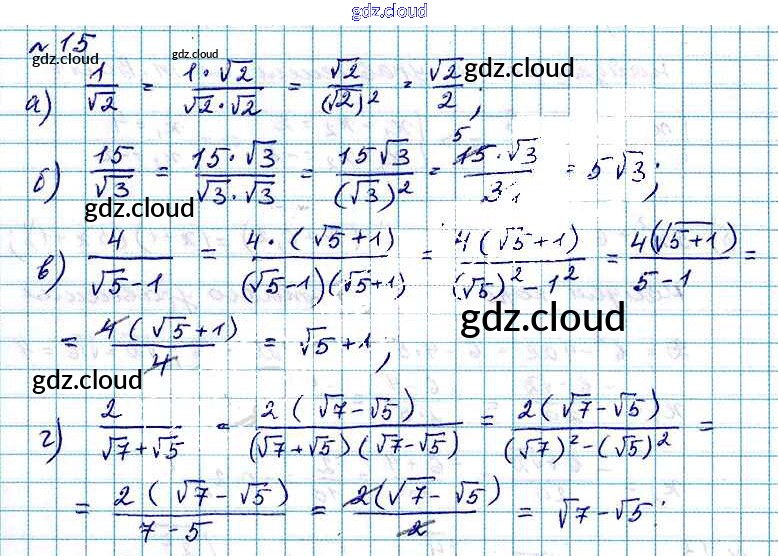 gdz.cloud
№ 15
gdz.cloud gdz.cloud gdz.cloud
а) 1/√2 = 1·√2/√2·√2 = √2/(√2)² = √2/2;
б) 15/√3 = 15·√3/√3·√3 = 15√3/(√3)² = 15·√3/3 = 5√3;
gdz.cloud
в) 4/√5-1 = 4·(√5+1)/(√5-1)(√5+1) = 4(√5+1)/(√5)²-1² = 4(√5+1)/5-1 =
gdz.cloud
= 4(√5+1)/4 = √5+1;
gdz.cloud
г) 2/√7+√5 = 2(√7-√5)/(√7+√5)(√7-√5) = 2(√7-√5)/(√7)²-(√5)² =
= 2(√7-√5)/7-5 = 2(√7-√5)/2 = √7-√5;